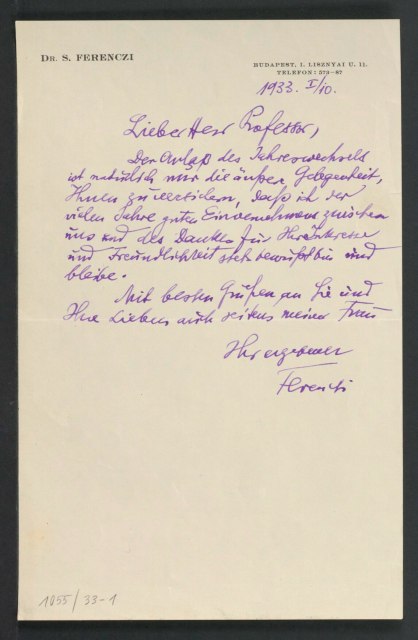 DR. S. FERENCZI
BUDAPEST, I. LISZNYAI U. 11.
TELEFON: 573-87
1933. I/10.
Lieber Herr Professor,
Der Anlaß des Jahreswechsels
ist natürlich nur die äußere Gelegenheit,
Ihnen zu versichern, daß ich der
vielen Jahre guten Einvernehmens zwischen
uns und des Dankes für Ihr Interesse
und Freundlichkeit stets bewußt bin und
bleibe.
Mit besten Grüßen an Sie und
Ihre Lieben auch seitens meiner Frau
Ihr ergebener
Ferenczi
1055/33-1